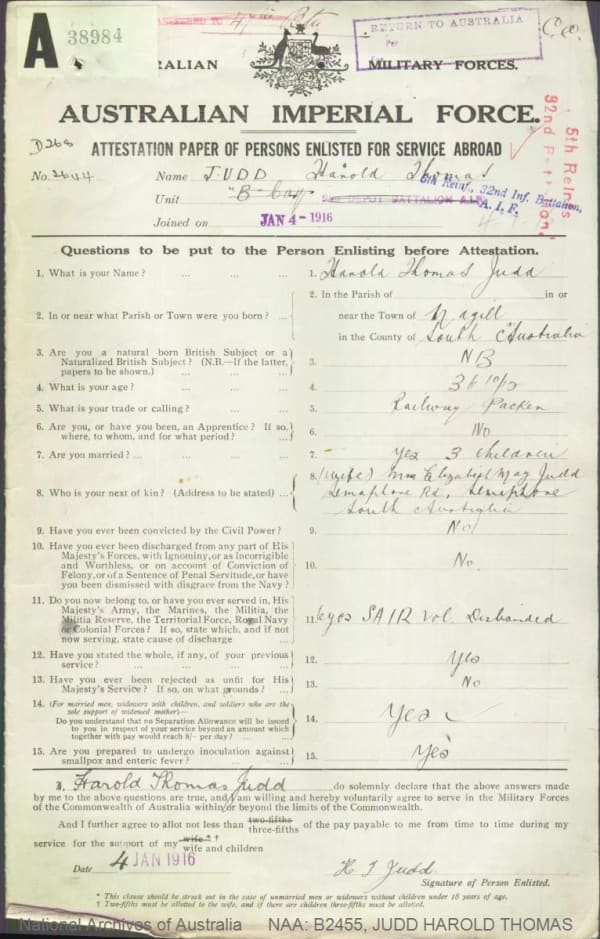 A 38984
TRANSFERRED TO
RETURN TO AUSTRALIA
Per
AUSTRALIAN MILITARY FORCES.
AUSTRALIAN IMPERIAL FORCE.
5th Reinfs
32nd Battalion.
D268 ATTESTATION PAPER OF PERSONS ENLISTED FOR SERVICE ABROAD
No. 2644 Name JUDD Harold Thomas
Unit "B" Coy DEPOT BATTALION A.I.F. 5th Reinf, 32nd Inf. Battalion, A. I. F.
Joined on JAN 4 - 1916
Questions to be put to the Person Enlisting before Attestation.
1. What is your Name? ... ... ... 1. Harold Thomas Judd
2. In or near what Parish or Town were you born? ... 2. In the Parish of in or
near the Town of Magill
in the County of South Australia
3. Are you a natural born British Subject or a
Naturalized British Subject? (N.B.—If the latter,
papers to be shown.) ... ... 3. NB
4. What is your age? ... ... ... 4. 36 10/12
5. What is your trade or calling? ... ... 5. Railway Packer
6. Are you, or have you been, an Apprentice? If so,
where, to whom, and for what period? ... 6. No
7. Are you married? ... ... ... 7. Yes 3 Children
8. Who is your next of kin? (Address to be stated) ... 8. (wife) Mrs Elizabeth May Judd
Semaphore Rd, Semaphore
South Australia
9. Have you ever been convicted by the Civil Power? 9. No
10. Have you ever been discharged from any part of His
Majesty's Forces, with Ignominy, or as Incorrigible
and Worthless, or on account of Conviction of
Felony, or of a Sentence of Penal Servitude, or have
you been dismissed with disgrace from the Navy? 10. No.
11. Do you now belong to, or have you ever served in, His
Majesty's Army, the Marines, the Militia, the
Militia Reserve, the Territorial Force, Royal Navy
or Colonial Forces? If so, state which, and if not
now serving, state cause of discharge 11. yes SAIR Vol. Disbanded
12. Have you stated the whole, if any, of your previous
service? ... ... ... ... 12. Yes
13. Have you ever been rejected as unfit for His
Majesty's Service? If so, on what grounds? ... 13. No
14. (For married men, widowers with children, and soldiers who are the
sole support of widowed mother)—
Do you understand that no Separation Allowance will be issued
to you in respect of your service beyond an amount which
together with pay would reach 8/- per day? ... 14. Yes
15. Are you prepared to undergo inoculation against
smallpox and enteric fever? ... ... 15. Yes
I, Harold Thomas Judd do solemnly declare that the above answers made
by me to the above questions are true, and I am willing and hereby voluntarily agree to serve in the Military Forces
of the Commonwealth of Australia within or beyond the limits of the Commonwealth.
And I further agree to allot not less than two-fifths three-fifths of the pay payable to me from time to time during my
service for the support of my wife * † wife and children
Date 4 JAN 1916 H T Judd.
Signature of Person Enlisted.
* This clause should be struck out in the case of unmarried men or widowers without children under 18 years of age.
† Two-fifths must be allotted to the wife, and if there are children three-fifths must be allotted.
National Archives of Australia NAA: B2455, JUDD HAROLD THOMAS